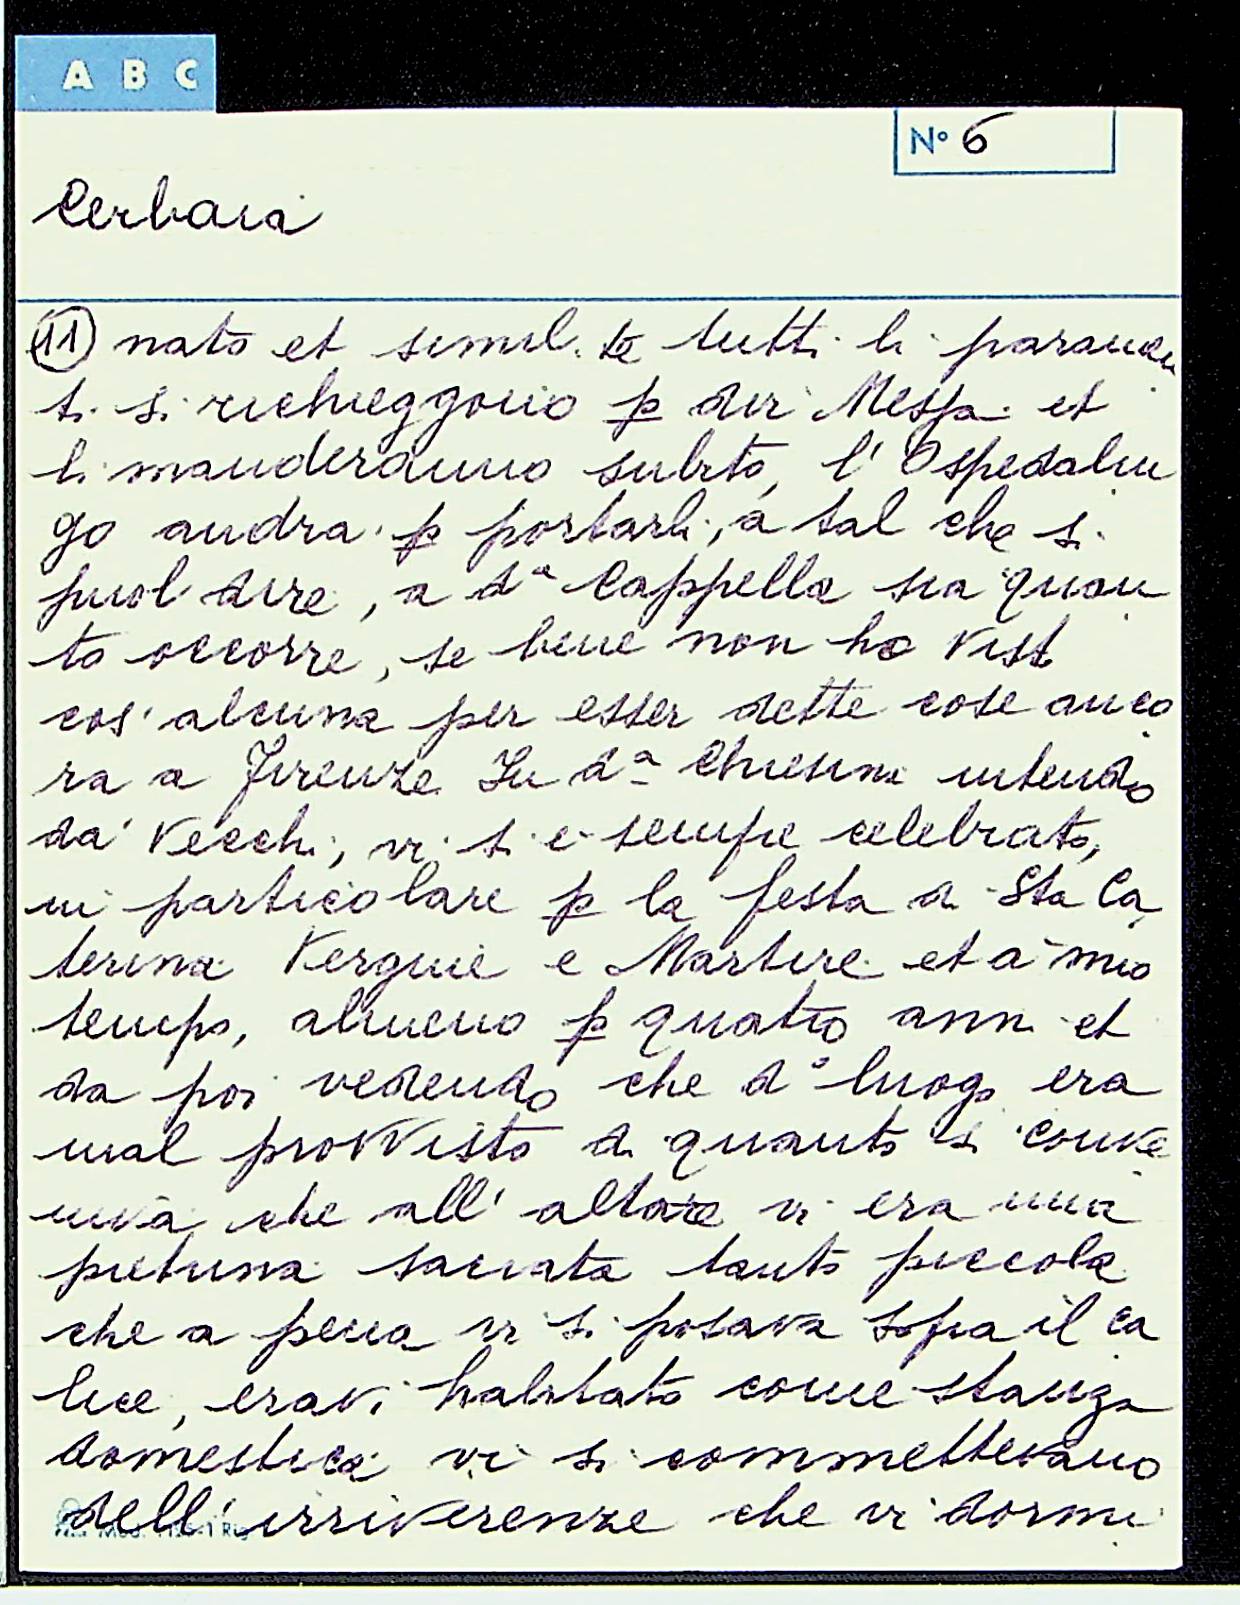 A B C
N° 6
Cerbaia
(11) nato et simil.te tutti li paramen
ti si richieggono p dir Messa et
li manderanno subito, l'Ospedalin
go andra p portarli, a tal che si
puol dire, a d.a Cappella sia quan
to occorre, se bene non ho vist
cos' alcuna per esser dette cose anco
ra a Firenze. In d.a Chiesina intendo
da' Vecchi, vi si e sempre celebrato,
in particolare p la festa di Sta Ca
terina Vergine e Martire et a mio
tempo, almeno p quatro anni et
da poi vedendo che d.o luogo era
mal provvisto di quanto si conve
niva che all' altare vi era una
pietrina sacrata tanto piccola
che a pena vi si posava sopra il ca
lice, eravi habitato come stanza
domestica vi si commettevano
dell' irriverenze che vi dormi